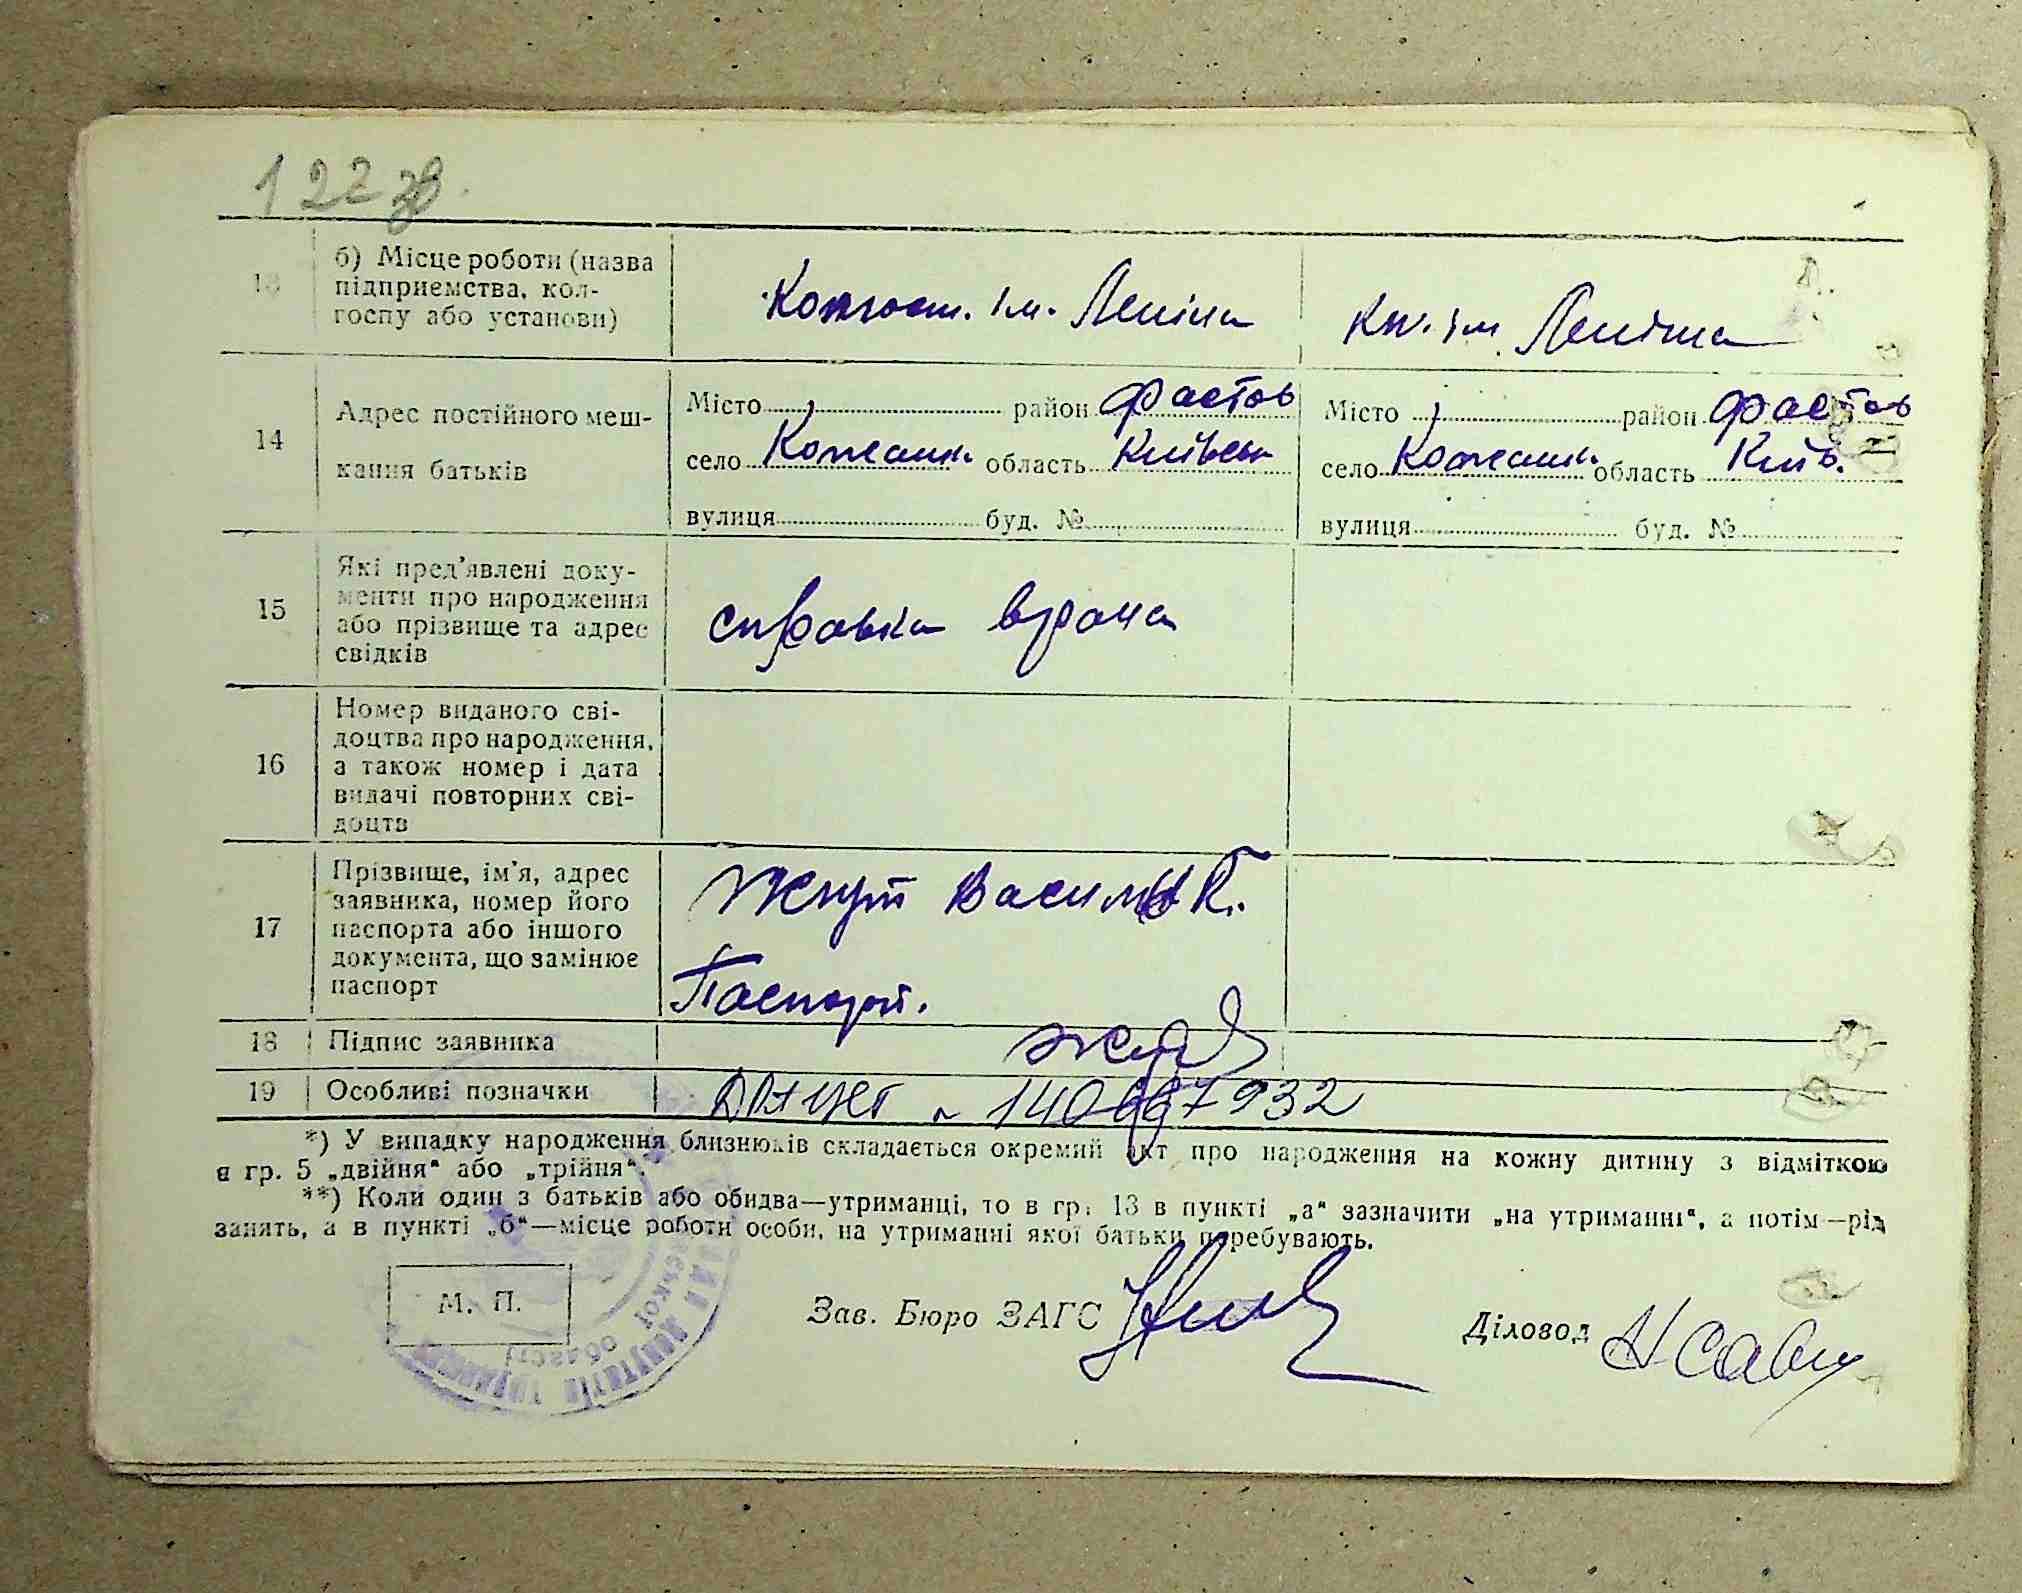 122 зв.
13 б) Місце роботи (назва
підприємства, кол-
госпу або установи)
Колгосп. ім. Леніна
Кл. ім Леніна
14 Адрес постійного меш-
кання батьків
Місто район Фастов
село Кожанки область Київськ
вулиця буд. №
Місто район Фастов
село Кожанки область Київ.
вулиця буд. №
15 Які пред'явлені доку-
менти про народження
або прізвище та адрес
свідків
справка врача
16 Номер виданого сві-
доцтва про народження,
а також номер і дата
видачі повторних сві-
доцтв
17 Прізвище, ім'я, адрес
заявника, номер його
паспорта або іншого
документа, що замінює
паспорт
Жгут Василь
Паспорт.
18 Підпис заявника
19 Особливі позначки
*) У випадку народження близнюків складається окремий акт про народження на кожну дитину з відміткою
в гр. 5 „двійня“ або „трійня“.
**) Коли один з батьків або обидва—утриманці, то в гр. 13 в пункті „а“ зазначити „на утриманні“, а потім—рід
занять, а в пункті „б“—місце роботи особи, на утриманні якої батьки перебувають.
М. П.
Зав. Бюро ЗАГС
Діловод
області
депутатів трудящих